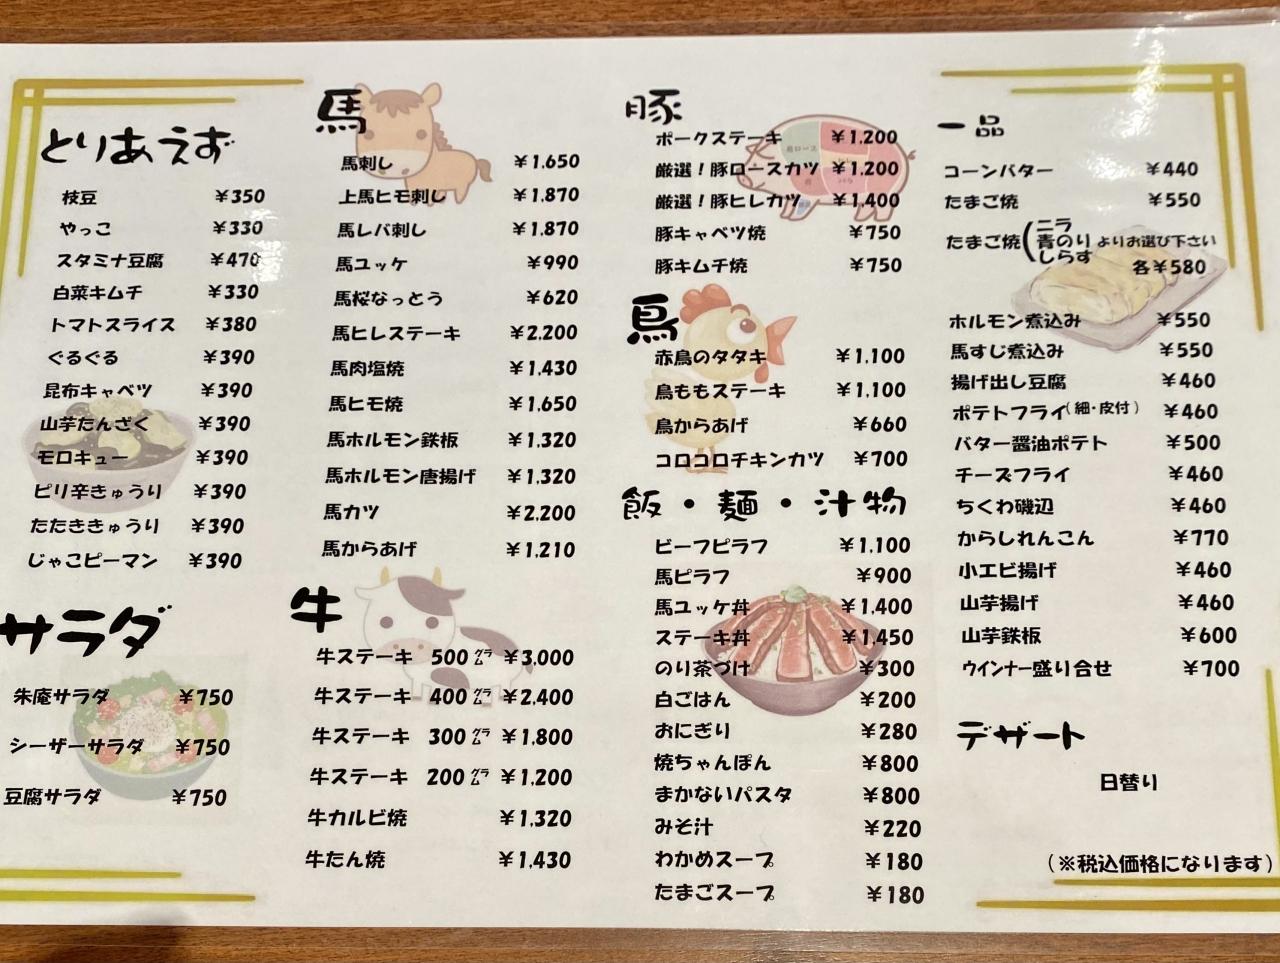 とりあえず
枝豆 ¥350
やっこ ¥330
スタミナ豆腐 ¥470
白菜キムチ ¥330
トマトスライス ¥380
ぐるぐる ¥390
昆布キャベツ ¥390
山芋たんざく ¥390
モロキュー ¥390
ピリ辛きゅうり ¥390
たたききゅうり ¥390
じゃこピーマン ¥390
サラダ
朱庵サラダ ¥750
シーザーサラダ ¥750
豆腐サラダ ¥750
馬
馬刺し ¥1,650
上馬ヒモ刺し ¥1,870
馬レバ刺し ¥1,870
馬ユッケ ¥990
馬桜なっとう ¥620
馬ヒレステーキ ¥2,200
馬肉塩焼 ¥1,430
馬ヒモ焼 ¥1,650
馬ホルモン鉄板 ¥1,320
馬ホルモン唐揚げ ¥1,320
馬カツ ¥2,200
馬からあげ ¥1,210
牛
牛ステーキ 500グラム ¥3,000
牛ステーキ 400グラム ¥2,400
牛ステーキ 300グラム ¥1,800
牛ステーキ 200グラム ¥1,200
牛カルビ焼 ¥1,320
牛たん焼 ¥1,430
豚
ポークステーキ ¥1,200
厳選!豚ロースカツ ¥1,200
厳選!豚ヒレカツ ¥1,400
豚キャベツ焼 ¥750
豚キムチ焼 ¥750
鳥
赤鳥のタタキ ¥1,100
鳥ももステーキ ¥1,100
鳥からあげ ¥660
コロコロチキンカツ ¥700
飯・麺・汁物
ビーフピラフ ¥1,100
馬ピラフ ¥900
馬ユッケ丼 ¥1,400
ステーキ丼 ¥1,450
のり茶づけ ¥300
白ごはん ¥200
おにぎり ¥280
焼ちゃんぽん ¥800
まかないパスタ ¥800
みそ汁 ¥220
わかめスープ ¥180
たまごスープ ¥180
一品
コーンバター ¥440
たまご焼 ¥550
たまご焼(ニラ
青のり よりお選び下さい
しらす 各¥580
ホルモン煮込み ¥550
馬すじ煮込み ¥550
揚げ出し豆腐 ¥460
ポテトフライ(細・皮付) ¥460
バター醤油ポテト ¥500
チーズフライ ¥460
ちくわ磯辺 ¥460
からしれんこん ¥770
小エビ揚げ ¥460
山芋揚げ ¥460
山芋鉄板 ¥600
ウインナー盛り合せ ¥700
デザート
日替り
(※税込価格になります)